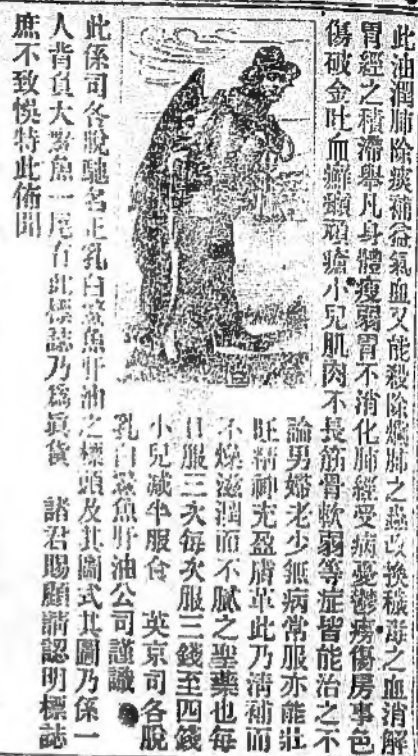 此油潤肺除痰補益氣血又能殺除爛肺之蟲改換穢毒之血消解
胃經之積滯舉凡身體瘦弱胃不消化肺經受病憂鬱癆傷房事色
傷破金吐血癬癩頑瘡小兒肌肉不長筋骨軟弱等症皆能治之不
論男婦老少無病常服亦能壯
旺精神充盈膚革此乃清補而
不燥滋潤而不膩之聖藥也每
日服三次每次服三錢至四錢
小兒減半服食 英京司各脫
乳白鰵魚肝油公司謹識
此係司各脫馳名正乳白鰵魚肝油之標頭及其圖式其圖乃係一
人背負大鰵魚一尾有此標誌乃為眞貨 諸君賜顧請認明標誌
庶不致悞特此佈聞